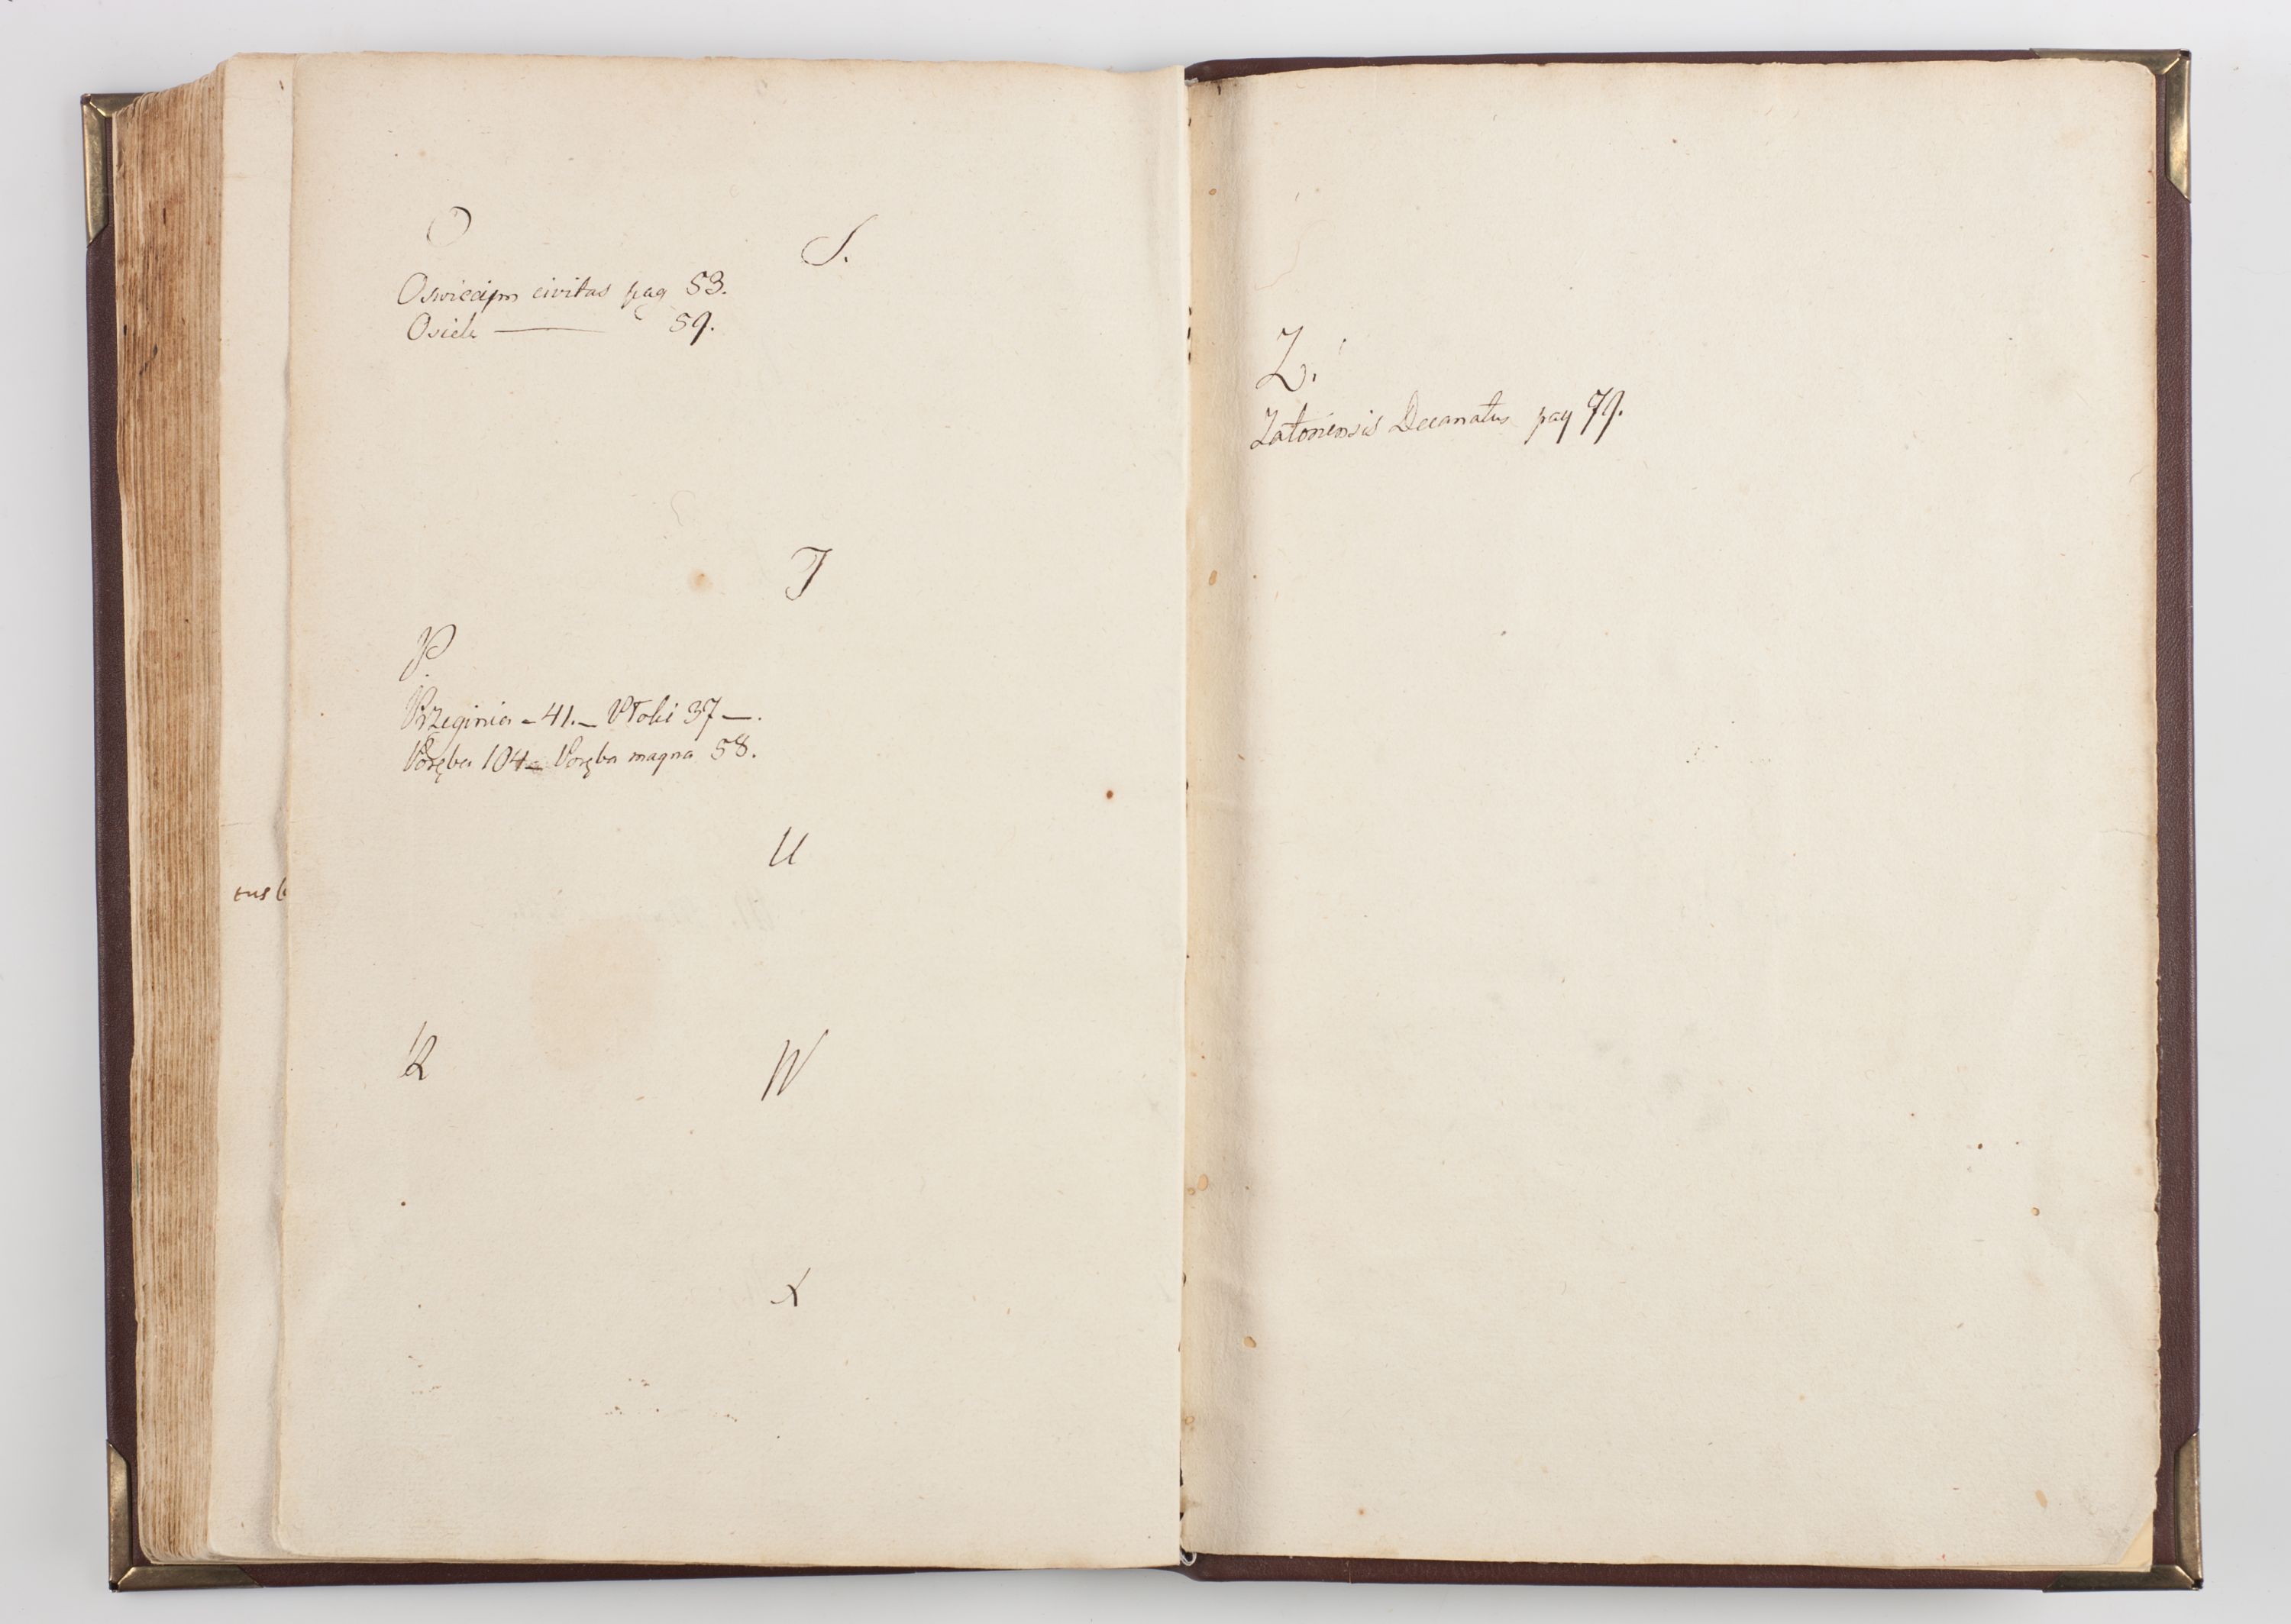 O
Oswiecipm civitas pag 53.
Osiek — 59.
P.
Przeginia - 41. - Ptoki 37 —.
Poręba 104 - Poręba magna 58.
R
S.
T
U
W
X
tus
Z.
Zatoriensis Decanatus pag 79.